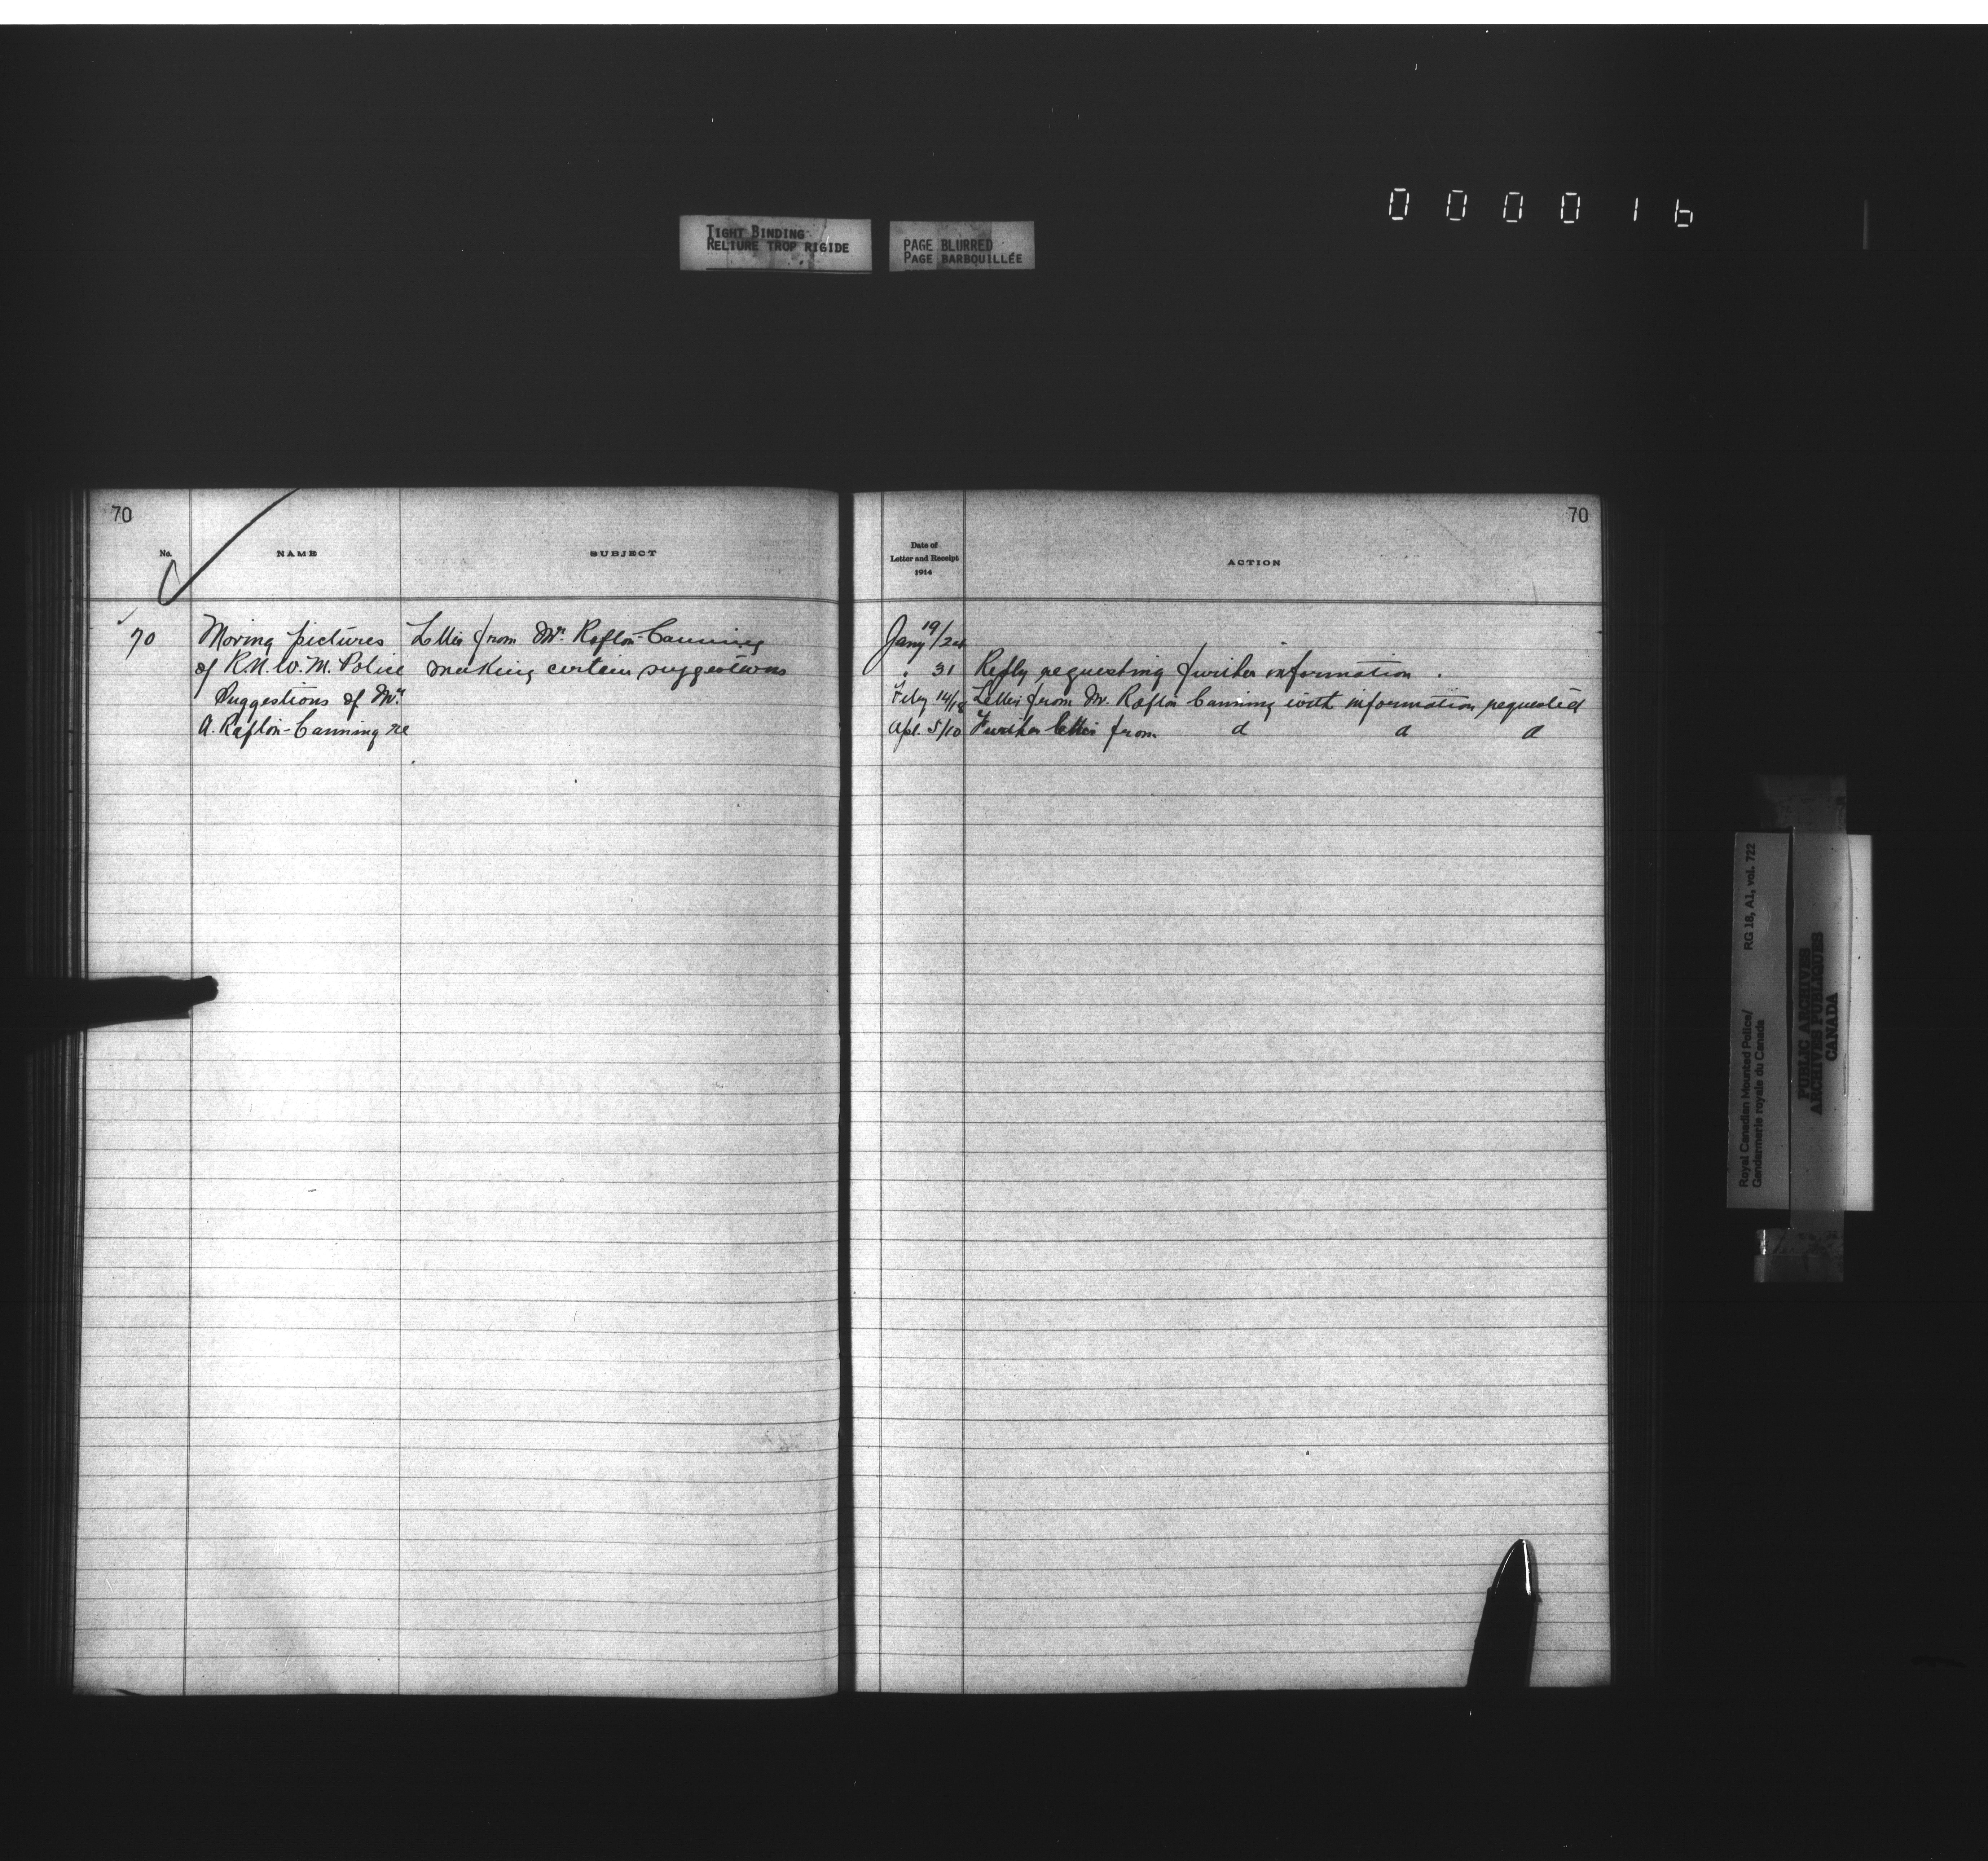 000016
TIGHT BINDING
RELIURE TROP RIGIDE
PAGE BLURRED
PAGE BARBOUILLÉE
70
No.
NAME
SUBJECT
70
Moving pictures
of R.N.W.M. Police
Suggestions of Mr.
A. Rafton-Canning re
Letter from Mr. Rafton-Canning
making certain suggestions
70
Date of
Letter and Receipt
1914
ACTION
Jany 19/24
" 31 Reply requesting further information.
Feby 14/18 Letter from Mr. Rafton Canning with information requested
Apl. 5/10 Further letter from d d d
Royal Canadian Mounted Police/ RG 18, A1, vol. 722
Gendarmerie royale du Canada
PUBLIC ARCHIVES
ARCHIVES PUBLIQUES
CANADA